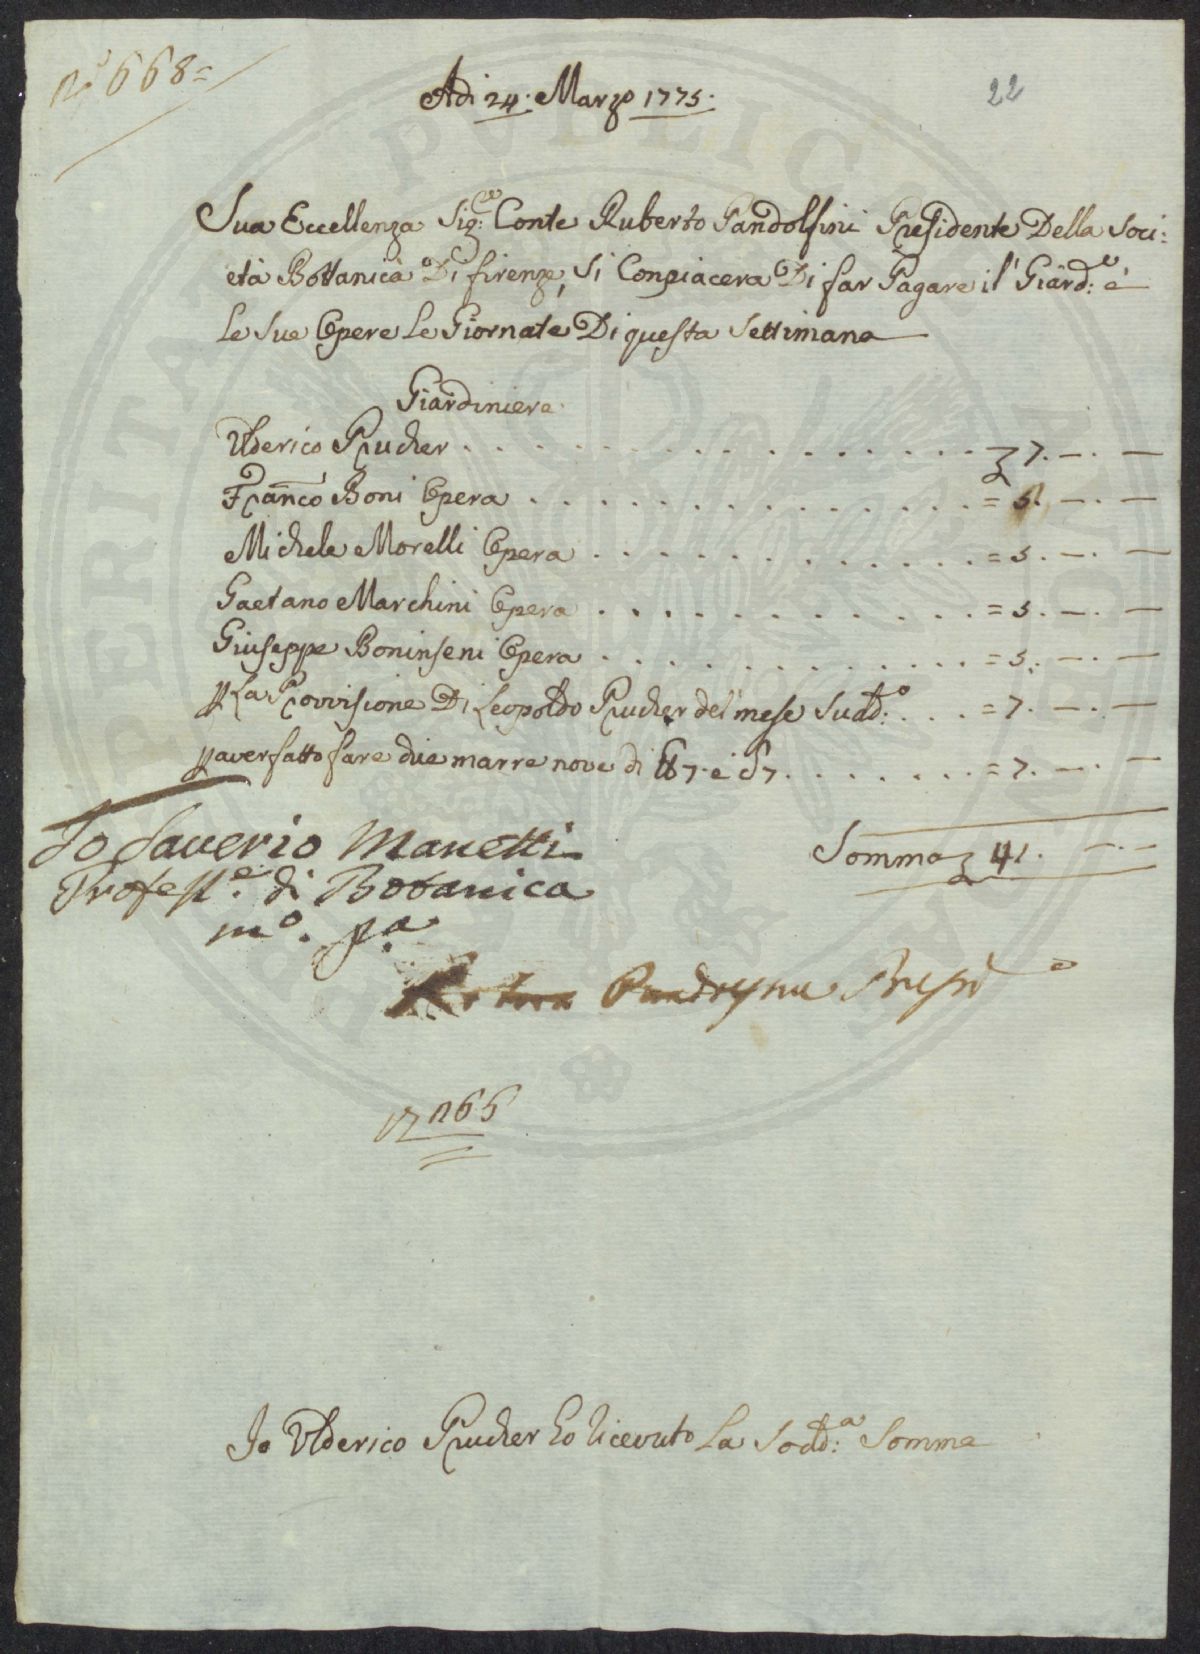 N.o 668=
Adi 24. Marzo 1775.
22
Sua Eccellenza Sig:re Conte Ruberto Pandolfini Presidente Della Soci:
età Bottanica Di firenze, Si Conpiacera Di far Pagare il' Giard:e è
Le Sue Opere Le Giornate Di questa Settimana
Giardiniere
Ulderico Prucher . . . . . . . . . . . . . . . . . . 7. —. —
Franco Boni Opera . . . . . . . . . . . . . . . = 5. —. —
Michele Morelli Opera . . . . . . . . . . . . . = 5. —. —
Gaetano Marchini Opera . . . . . . . . . . . . = 5. —. —
Giuseppe Boninseni Opera . . . . . . . . . . . . = 5. —. —
La Provvisione Di Leopoldo Prucher del mese Sudd:o . . . = 7. —. —
aver fatto fare due marre nove di 7. è 7. . . . . . . . = 7. —. —
Somma 41. —.—
Io Saverio Manetti
Profess.e di Botanica
m.o p.a
265
Io Ulderico Prucher ho ricevuto La Sodd:a Somma
PERITAT PVBLICAE